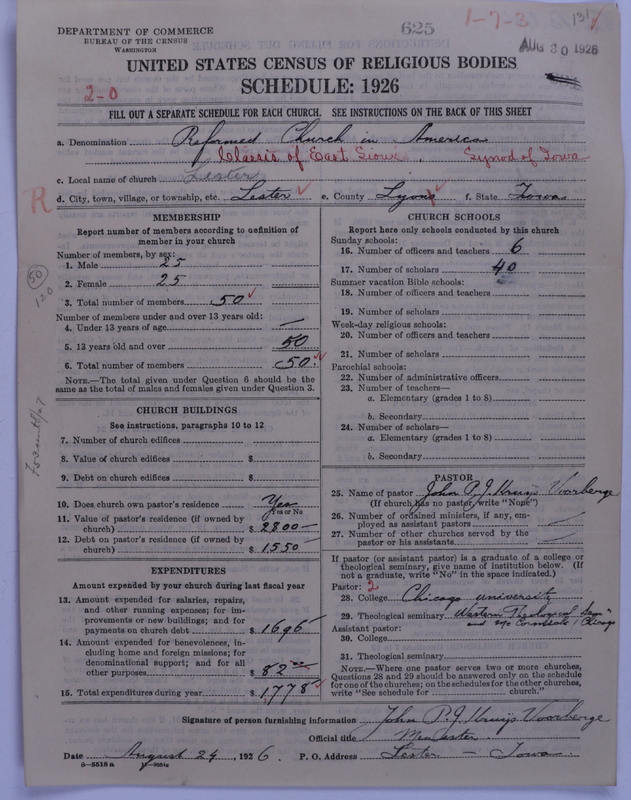 DEPARTMENT OF COMMERCE
BUREAU OF THE CENSUS
WASHINGTON
625
1-7-3
AUG 30 1926
UNITED STATES CENSUS OF RELIGIOUS BODIES
SCHEDULE: 1926
2-0
FILL OUT A SEPARATE SCHEDULE FOR EACH CHURCH. SEE INSTRUCTIONS ON THE BACK OF THIS SHEET
a. Denomination Reformed Church in America
Classis of East Sioux, Synod of Iowa
c. Local name of church Lester
R
d. City, town, village, or township, etc. Lester e. County Lyons f. State Iowa
MEMBERSHIP
Report number of members according to definition of member in your church
Number of members, by sex:
1. Male 25
2. Female 25
3. Total number of members 50
Number of members under and over 13 years old:
4. Under 13 years of age —
5. 13 years old and over 50
6. Total number of members 50
NOTE.—The total given under Question 6 should be the same as the total of males and females given under Question 3.
50
120
CHURCH BUILDINGS
See instructions, paragraphs 10 to 12
7. Number of church edifices
8. Value of church edifices $
9. Debt on church edifices $
10. Does church own pastor's residence Yes
Yes or No
11. Value of pastor's residence (if owned by church) $ 2800
12. Debt on pastor's residence (if owned by church) $ 1550
EXPENDITURES
Amount expended by your church during last fiscal year
13. Amount expended for salaries, repairs, and other running expenses; for improvements or new buildings; and for payments on church debt $ 1696
14. Amount expended for benevolences, including home and foreign missions; for denominational support; and for all other purposes $ 82
15. Total expenditures during year $ 1778
CHURCH SCHOOLS
Report here only schools conducted by this church
Sunday schools:
16. Number of officers and teachers 6
17. Number of scholars 40
Summer vacation Bible schools:
18. Number of officers and teachers
19. Number of scholars
Week-day religious schools:
20. Number of officers and teachers
21. Number of scholars
Parochial schools:
22. Number of administrative officers
23. Number of teachers—
a. Elementary (grades 1 to 8)
b. Secondary
24. Number of scholars—
a. Elementary (grades 1 to 8)
b. Secondary
PASTOR
25. Name of pastor John P. J. Kruijs Voorberge
(If church has no pastor, write "None")
26. Number of ordained ministers, if any, employed as assistant pastors
27. Number of other churches served by the pastor or his assistants
If pastor (or assistant pastor) is a graduate of a college or theological seminary, give name of institution below. (If not a graduate, write "No" in the space indicated.)
Pastor: 2
28. College Chicago university
29. Theological seminary Western Theological Sem
and Mc Cormick Chicago
Assistant pastor:
30. College
31. Theological seminary
NOTE.—Where one pastor serves two or more churches, Questions 28 and 29 should be answered only on the schedule for one of the churches; on the schedules for the other churches, write "See schedule for church."
Signature of person furnishing information John P. J. Kruijs Voorberge
Official title
Date August 24, 1926. P. O. Address Lester - Iowa
8-5518 a